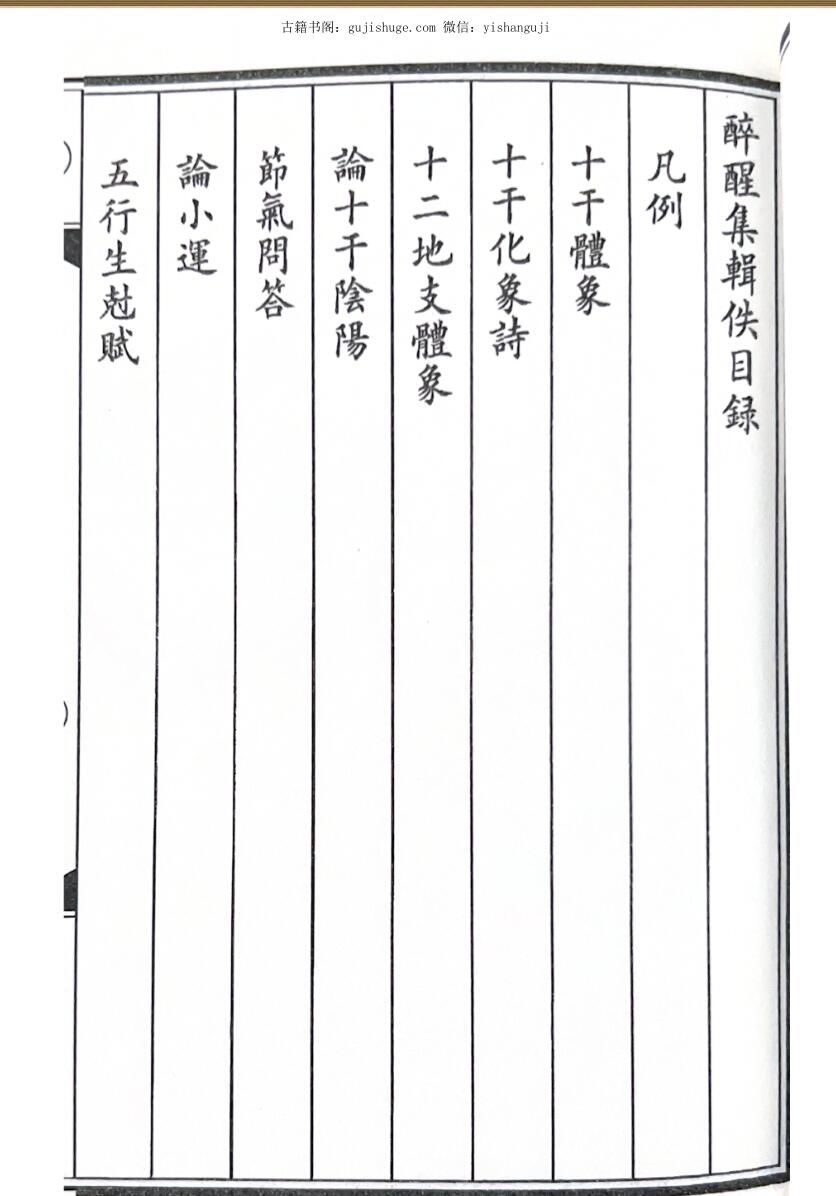 古籍书阁：gujishuge.com 微信：yishanguji
醉醒集輯佚目録
凡例
十干體象
十干化象詩
十二地支體象
論十干陰陽
節氣問答
論小運
五行生尅賦